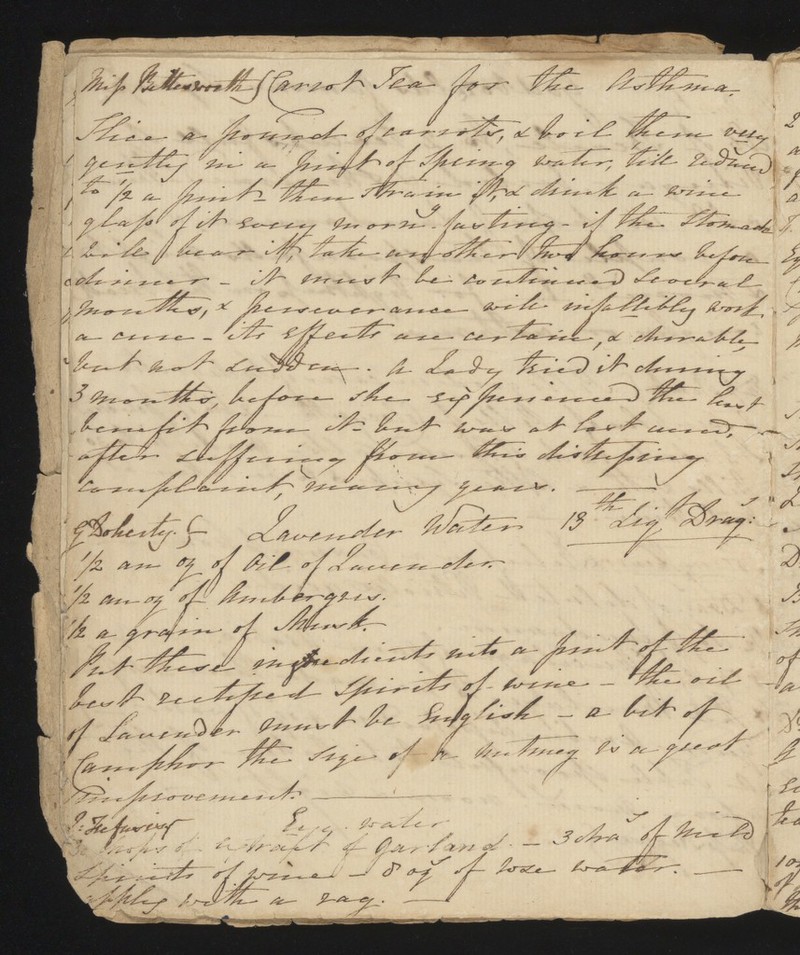 Miss Butterworth { Carrot Tea for the Asthma.
Slice a pound of carrots, & boil them very
gently in a pint of Spring water, till reduced
to 1/2 a pint - then strain it, & drink a wine
glass of it every morng. fasting - if the Stomach
will bear it, take another two hours before
dinner - it must be continued several
months, & perseverance will infallibly work
a cure - its effects are certain, & durable,
but not sudden. a Lady tried it during
3 months, before she experienced the least
benefit from it - but was at last cured,
after suffering from this distressing
complaint, many years.
Doherty. } Lavender Water 13th Ligt Drags:
1/2 an oz of Oil of Lavender.
1/2 an oz of Ambergris.
1/2 a grain of Musk.
Put these ingredients into a pint of the
best rectified Spirits of wine - the oil
of Lavender must be English - a bit of
Camphor the size of a nutmeg is a great
improvement.
water
drops of extract of - 3 dras of mild
Spirits of wine - 8 ozs of rose water.
apply with a rag.